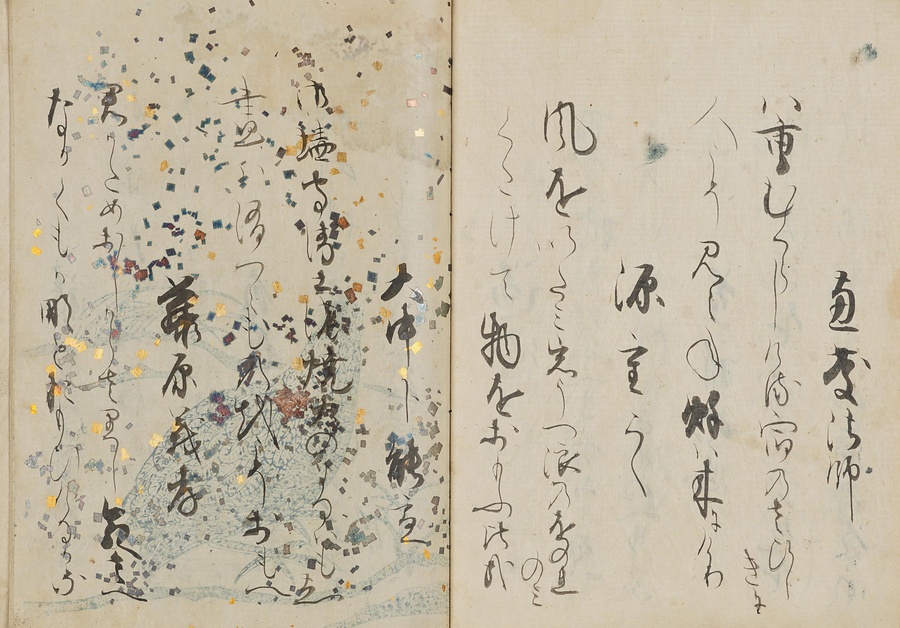 恵慶法師
八重むくらしけれる宿のさひし
きに
人こそ見えね秋は来にけり
源重之
風をいたミ岩うつ浪のをのれ
のミ
くたけて物をおもふ比哉
大中臣能宣
御垣守衛士の焼火のよるハもえ
昼は消つゝ物をこそおもへ
藤原義孝
君かためおしからさりし命さへ
なかくもか那とおもひけるかな